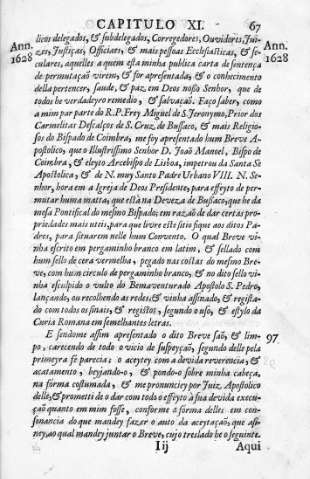 CAPITULO XI. 67
Ann. 1628
Ann. 1628
licos delegados, & subdelegados, Corregedores, Ouvidores, Jui-
zes, Justiças, Officiaes, & mais pessoas Ecclesiasticas, & se-
culares, aquelles a quem esta minha publica carta de sentença
de permutaçaõ virem, & for apresentada, & o conhecimento
della pertencer, saude, & paz em Deos nosso Senhor, que de
todos he verdadeyro remedio, & salvaçaõ. Faço saber, como
a mim por parte do R. P. Frey Miguel de S. Jeronymo, Prior dos
Carmelitas Descalços de S. Cruz, de Bussaco, & mais Religio-
sos do Bispado de Coimbra, me foy apresentado hum Breve A-
postolico, que o Illustrissimo Senhor D. Joaõ Manoel, Bispo de
Coimbra, & eleyto Arcebispo de Lisboa, impetrou da Santa Sè
Apostolica, & de N. muy Santo Padre Urbano VIII. N. Se-
nhor, hora em a Igreja de Deos Presidente, para effeyto de per-
mutar huma matta, que està na Deveza de Bussaco, que he da
mesa Pontifical do mesmo Bispado; em razaõ de dar certas pro-
priedades mais uteis, para que livre este sitio fique aos ditos Pa-
dres, para situarem nelle hum Convento. O qual Breve vi-
nha escrito em pergaminho branco em latim, & sellado com
hum sello de cera vermelha, pegado nas costas do mesmo Bre-
ve, com hum circulo de pergaminho branco, & no dito sello vi-
nha esculpido o vulto do Bemaventurado Apostolo S. Pedro,
lançando, ou recolhendo as redes, & vinha assinado, & registra-
do com todos os sinaes, & registos, segundo o uso, & estylo da
Curia Romana em semelhantes letras.
E sendome assim apresentado o dito Breve saõ, & lim- 97
po, carecendo de todo o vicio de suspeyçaõ, segundo delle pela
primeyra fe parecia; o aceytey com a devida reverencia, &
acatamento, beyjando-o, & pondo-o sobre minha cabeça,
na fórma costumada, & me pronunciey por Juiz Apostolico
delle, & prometti de o dar com todo o effeyto à sua devida execu-
çaõ quanto em mim fosse, conforme a fórma delle: em con-
sonancia do que mandey fazer o auto da aceytaçaõ, que assi-
ney, ao qual mandey juntar o Breve, cujo treslado he o seguinte.
Iij Aqui